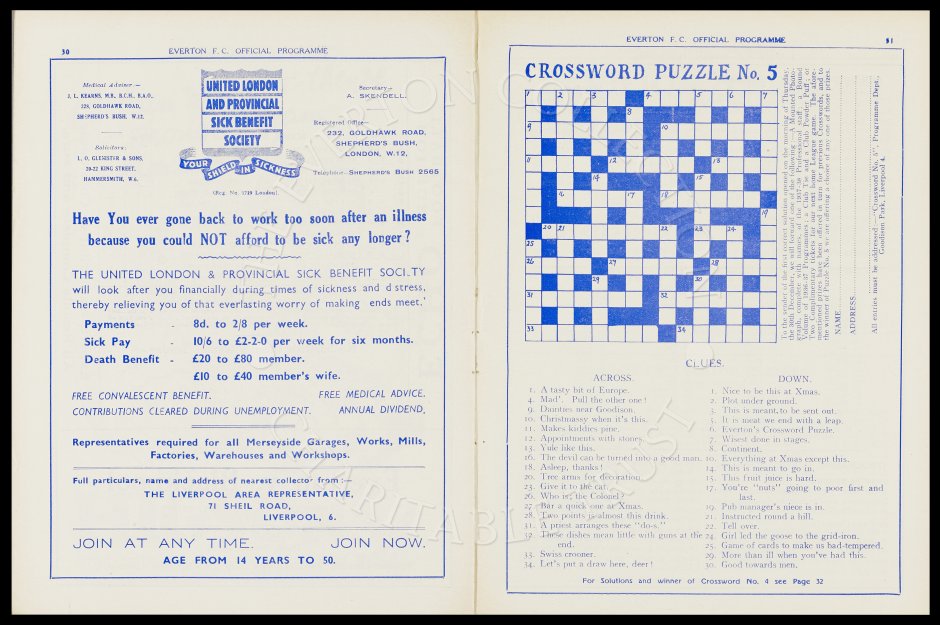 30
EVERTON F. C. OFFICIAL PROGRAMME
Medical Adviser —
J. L. KEARNS, M.B., B.CH., B.A.O.,
228, GOLDHAWK ROAD,
SHEPHERD'S BUSH, W.12.
Solicitors:
L. O. GLENISTER & SONS,
20-22 KING STREET,
HAMMERSMITH, W.6.
UNITED LONDON
AND PROVINCIAL
SICK BENEFIT
SOCIETY
YOUR SHIELD IN SICKNESS
(Reg. No. 1719 London).
Secretary—
A. SKENDELL.
Registered Office—
232, GOLDHAWK ROAD,
SHEPHERD'S BUSH,
LONDON, W.12.
Telephone—SHEPHERD'S BUSH 2565
Have You ever gone back to work too soon after an illness
because you could NOT afford to be sick any longer?
THE UNITED LONDON & PROVINCIAL SICK BENEFIT SOCIETY
will look after you financially during times of sickness and distress,
thereby relieving you of that everlasting worry of making ends meet.'
Payments - 8d. to 2/8 per week.
Sick Pay - 10/6 to £2-2-0 per week for six months.
Death Benefit - £20 to £80 member.
£10 to £40 member's wife.
FREE CONVALESCENT BENEFIT. FREE MEDICAL ADVICE.
CONTRIBUTIONS CLEARED DURING UNEMPLOYMENT. ANNUAL DIVIDEND,
Representatives required for all Merseyside Garages, Works, Mills,
Factories, Warehouses and Workshops.
Full particulars, name and address of nearest collector from :—
THE LIVERPOOL AREA REPRESENTATIVE,
71 SHEIL ROAD,
LIVERPOOL, 6.
JOIN AT ANY TIME. JOIN NOW.
AGE FROM 14 YEARS TO 50.
EVERTON F. C. OFFICIAL PROGRAMME
31
CROSSWORD PUZZLE No. 5
To the sender of the first correct solution opened on the morning of Thursday,
the 30th December, we will forward one of the following :—A Mounted Photo-
graph, complete with names, of the 1937-38 Professional staff; a Bound
Volume of 1936-37 Programmes; a Club Tie and a Club Powder Puff; or
Two Complimentary tickets for our next home League game. The afore-
mentioned prizes have been offered in turn for previous Crosswords, and to
the winner of Puzzle No. 5 we are offering a choice of any one of those prizes.
NAME
ADDRESS
All entries must be addressed—"Crossword No. 5", Programme Dept.,
Goodison Park, Liverpool 4.
CLUES.
ACROSS.
1. A tasty bit of Europe.
4. Mad'. Pull the other one!
9. Dainties near Goodison.
10. Christmassy when it's this.
11. Makes kiddies pine.
12. Appointments with stones.
13. Yule like this.
16. The devil can be turned into a good man.
18. Asleep, thanks!
20. Tree arms for decoration.
23. Give it to the cat.
26. Who is; the Colonel?
27. Bar a quick one at Xmas.
28. Two points is almost this drink.
31. A priest arranges these "do-s."
32. These dishes mean little with guns at the
end.
33. Swiss crooner.
34. Let's put a draw here, deer!
DOWN.
1. Nice to be this at Xmas.
2. Plot under ground.
3. This is meant to be sent out.
5. It is meat we end with a leap.
6. Everton's Crossword Puzzle.
7. Wisest done in stages.
8. Continent.
10. Everything at Xmas except this.
14. This is meant to go in.
15. This fruit juice is hard.
17. You're "nuts" going to poor first and
last.
19. Pub manager's niece is in.
21. Instructed round a hill.
22. Tell over.
24. Girl led the goose to the grid-iron.
25. Game of cards to make us bad-tempered.
29. More than ill when you've had this.
30. Good towards men.
For Solutions and winner of Crossword No. 4 see Page 32